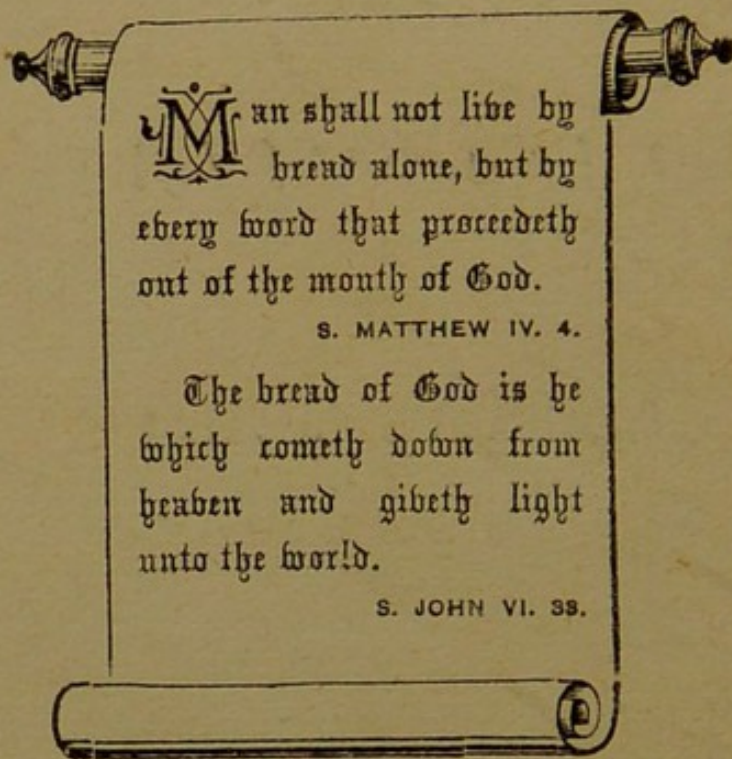 Man shall not live by
bread alone, but by
every word that proceedeth
out of the mouth of God.
S. MATTHEW IV. 4.
The bread of God is he
which cometh down from
heaven and giveth light
unto the world.
S. JOHN VI. 33.